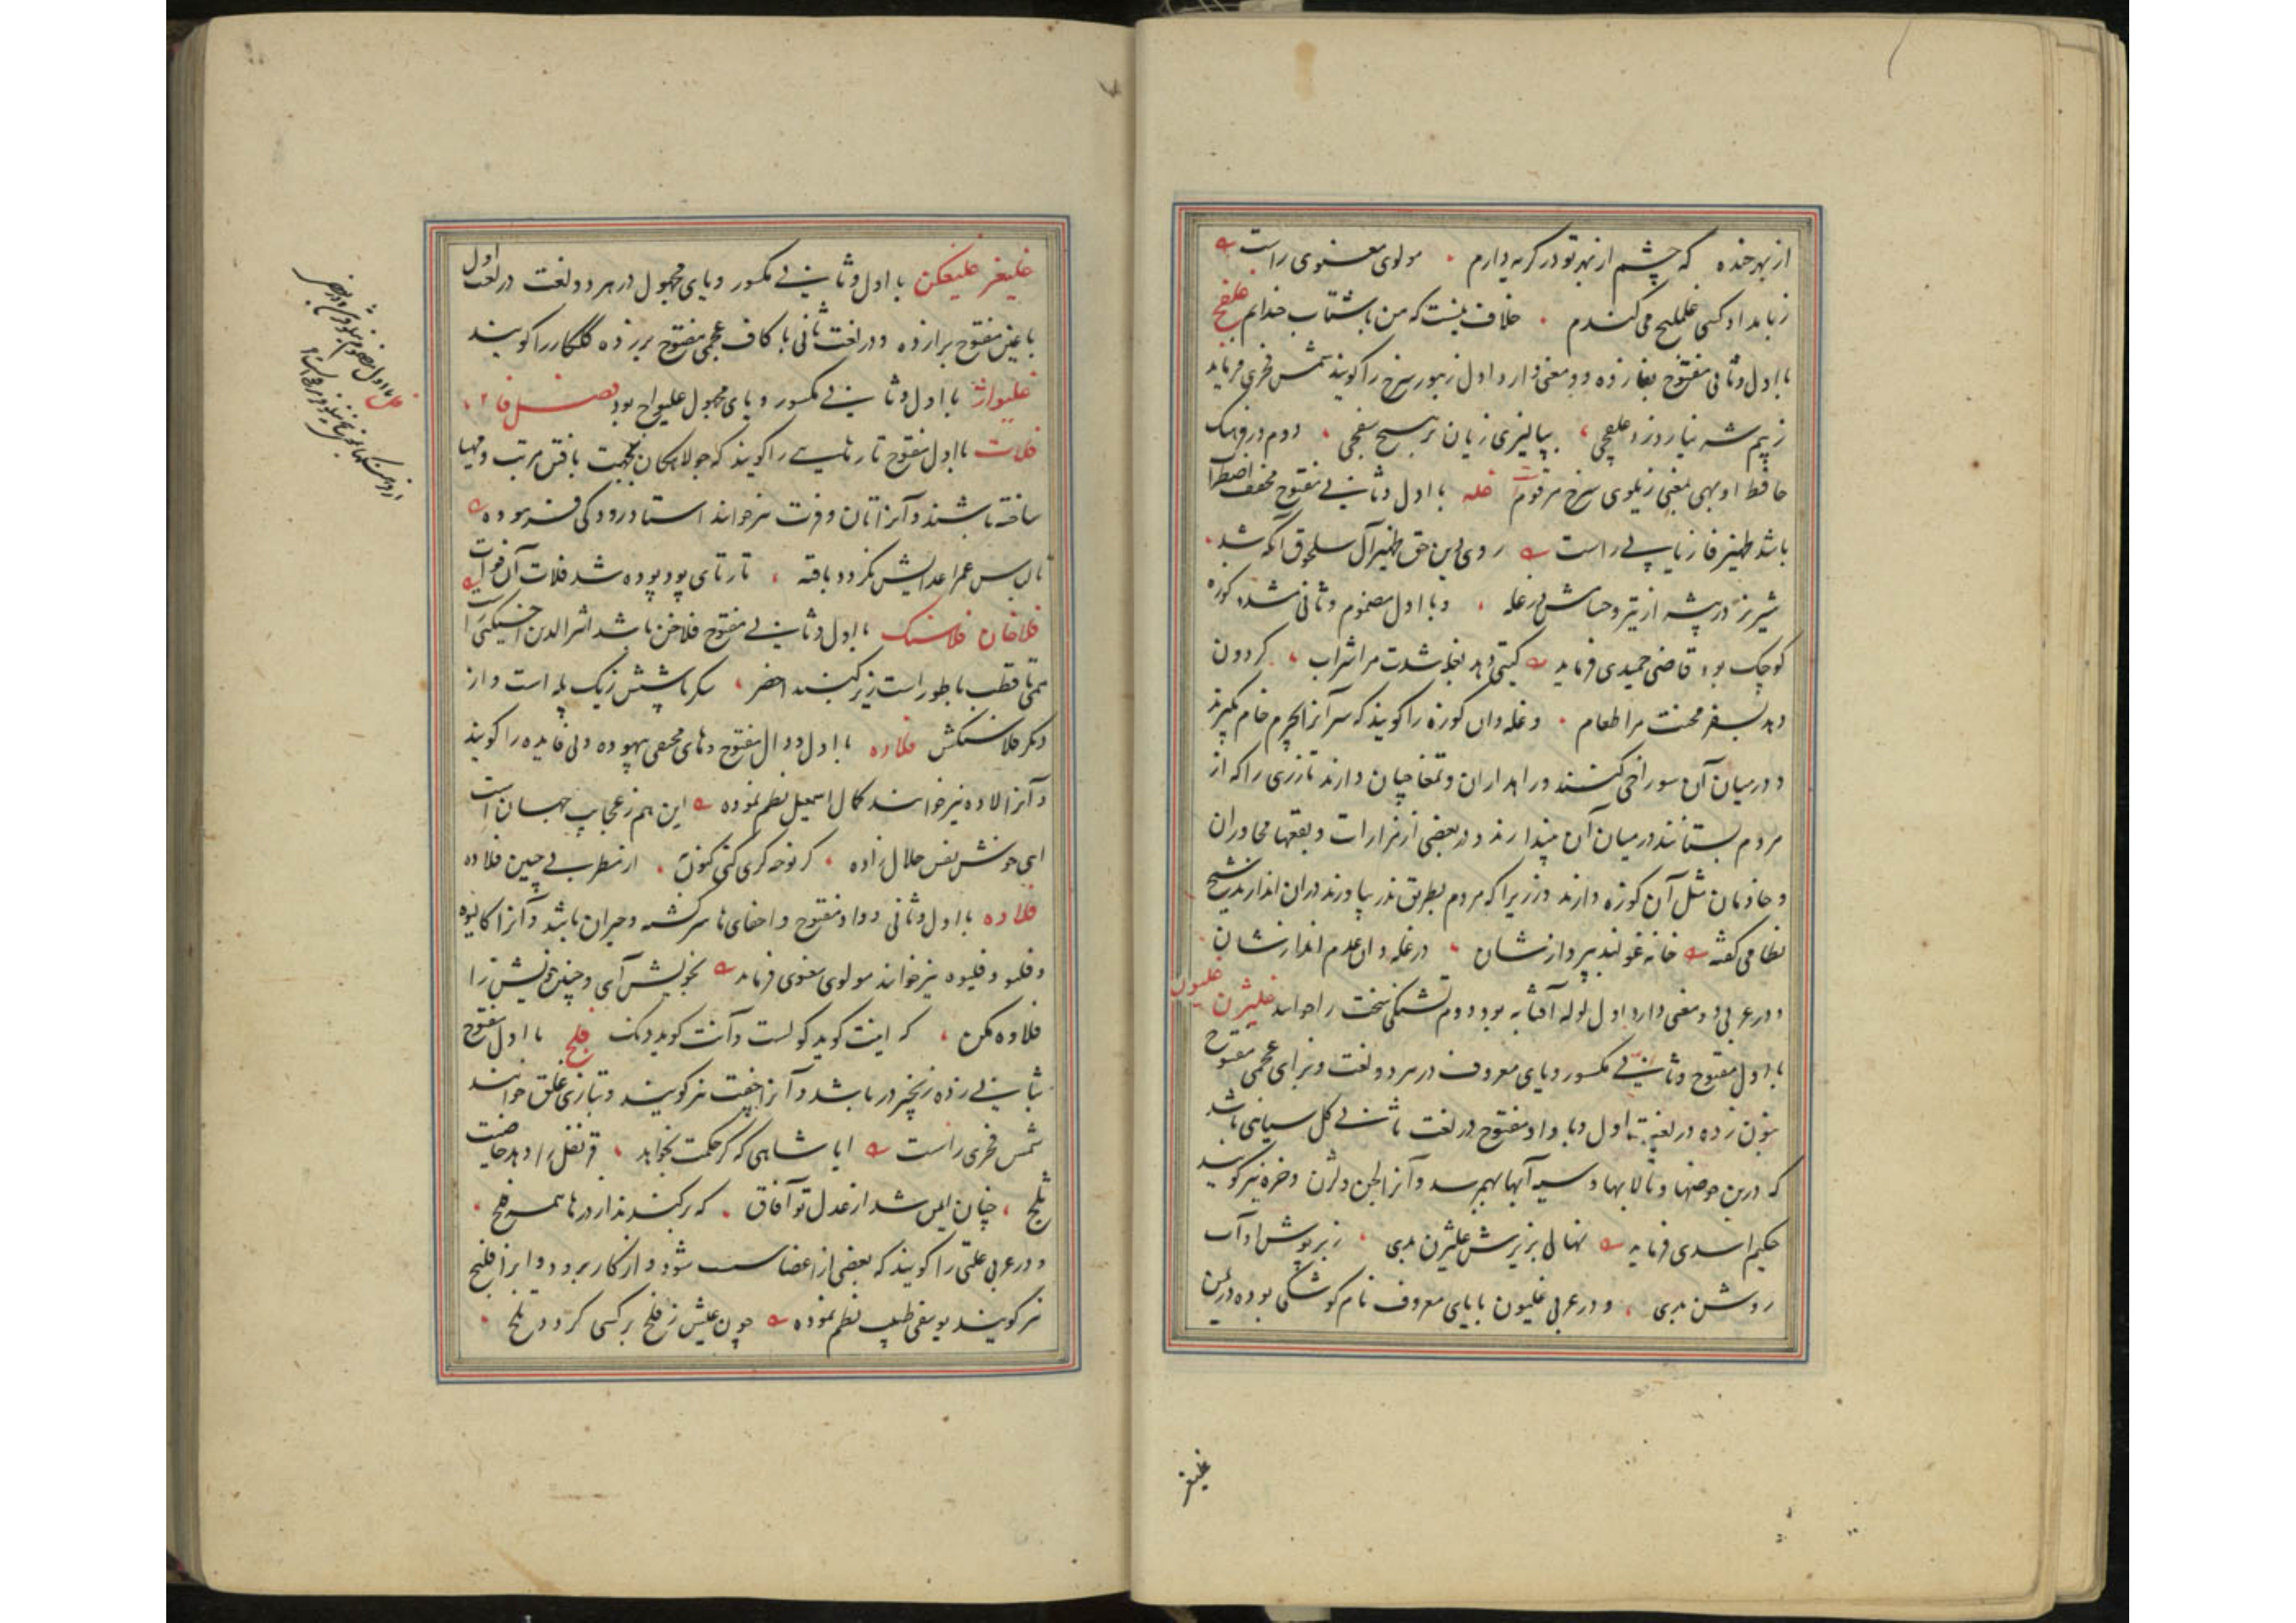 از بهر خنده که چشم از بهر تو در گریه دارم ۰ مولوی معنوی راست
ز بامداد کسی غلملیج می‌کندم ۰ خلاف نیست که من باشتاب خندانم غلفج
با اول و ثانی مفتوح بفا زده دو معنی دارد اول زنبور سرخ را گویند شمس فخری فرماید
ز بیم شه نیارد زد غلفجی ، بپالیزی زیان بر هیچ سفجی ۰ دوم در فرهنگ
حافظ اوبهی بمعنی زیلوی سرخ مرقوم غله با اول و ثانی مفتوح مخفف اضطراب
باشد ظهیر فاریابی راست روی دین حق ظهیر آل سلجوق آنکه شد
شیر نر در بیشه از تیر و حسامش در غله ، و با اول مضموم و ثانی مشدد کوزه
کوچک بود قاضی حمیدی فرماید گیتی دهد بغله شدت مرا شراب ، گردون
دهد بسفره محنت مرا طعام ۰ و غله دان کوزه را گویند که سر آنرا بچرم خام گیرند
و در میان آن سوراخی کنند و راهداران و تمغاچیان دارند تا زری را که از
مردم بستانند در میان آن میندازند و در بعضی از مزارات و بقعها مجاوران
و خادمان مثل آن کوزه دارند و زریرا که مردم بطریق نذر بیاورند در آن اندازند شیخ
نظامی گفته خانه غولند بپردازنشان ، در غله دان عدم اندازنشان
و در عربی دو معنی دارد اول لوله آفتابه بود دوم تشنگی سخت را خوانند غلیژن غلیون
با اول مفتوح و ثانی مکسور و یای معروف در هر دو لغت و بزای عجمی مفتوح
بنون زده در لغت اول و با واو مفتوح در لغت ثانی گل سیاهی باشد
که در بن حوضها و تالابها و سیه آبها بهم رسد و آنرا لجن و لژن و خره نیز گویند
حکیم اسدی فرماید نهال بزیرش غلیژن بدی ، زبر پوشش او آب
روشن بدی ، و در عربی غلیون با یای معروف نام کوشکی بوده در یمن
غلیغر
غلیغر غلیگن با اول و ثانی مکسور و یای مجهول در هر دو لغت در لغت اول
با غین مفتوح برا زده و در لغت ثانی با کاف عجمی مفتوح بر زده گلکار را گویند
غلیواژ با اول و ثانی مکسور و یای مجهول غلیواج بود فصل فا
فلات با اول مفتوح تار هایی را گویند که جولاهگان بجهت بافتن مرتب و مهیا
ساخته باشند و آنرا تان و فرت نیز خوانند استاد رودکی فرموده
تا لباس عمر اعدایش نگردد بافته ، تار تای پود پوده شد فلات آن فوات
فلاخان فلاسنگ با اول و ثانی مفتوح فلاخن باشد اثیرالدین اخسیکتی راست
همی تا قطب با طور است زیر گنبد اخضر ، شکر پاشش ز یک پله است و از
دیگر فلاسنگش فلاده با اول و دال مفتوح و های مخفی بیهوده و بی فایده را گویند
و آنرا لاده نیز خوانند کمال اسمعیل نظم نموده این هم ز عجایب جهان است
ای خوش نفس حلال زاده ۰ گر نوحه گری کنی کنون ۰ از مطرب بی چین فلاده
فلاوه با اول و ثانی و واو مفتوح و اخفای ها سرگشته و حیران باشد و آنرا کالیوه
و فلیو و فلیوه نیز خوانند مولوی معنوی فرماید بخویش آی و چنین خویش را
فلاوه مکن ، که اینت گوید گولست و آنت گوید دنگ فلج با اول مفتوح
بثانی زده زنجیر در باشد و آنرا جفت نیز گویند و بتازی غلق خوانند
شمس فخری راست ایا شاهی که گر حکمت نخواهد ، قرنفل را دهد خاصیت
ثلج ، چنان ایمن شد از عدل تو آفاق ۰ که بر کندند از درها همه فلج ۰
و در عربی علتی را گویند که بعضی از اعضا سست شود و از کار برود و آنرا فلیج
نیز گویند یوسفی طبیب نظم نموده چون عیش ز فلج بر کسی گردد تلخ ۰